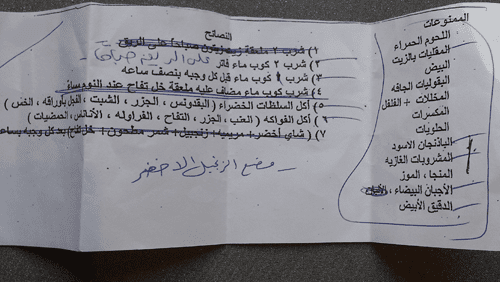 النصائح
١) شرب ٢ ملعقة زيت زيتون صباحاً على الريق
٢) شرب ٢ كوب ماء فاتر على الريق صباحاً
٣) شرب ١ كوب ماء قبل كل وجبه بنصف ساعه
٤) شرب كوب ماء مضاف عليه ملعقة خل تفاح عند النوم مساءً
٥) أكل السلطات الخضراء (البقدونس ، الجزر ، الشبت ، الفجل بأوراقه ، الخس)
٦) أكل الفواكه (العنب ، الجزر ، التفاح ، الفراوله ، الأناناس ، الحمضيات)
٧) شاي أخضر + مرميه + زنجبيل + شمر مطحون + خل تفاح بعد كل وجبه بساعه
ـ مضغ الزنجبيل الاخضر
الممنوعات
اللحوم الحمراء
المقليات بالزيت
البيض
البقوليات الجافه
المخللات + الفلفل
المكسرات
الحلويات
الباذنجان الاسود
المشروبات الغازيه
المنجا ، الموز
الأجبان البيضاء ،
الدقيق الأبيض